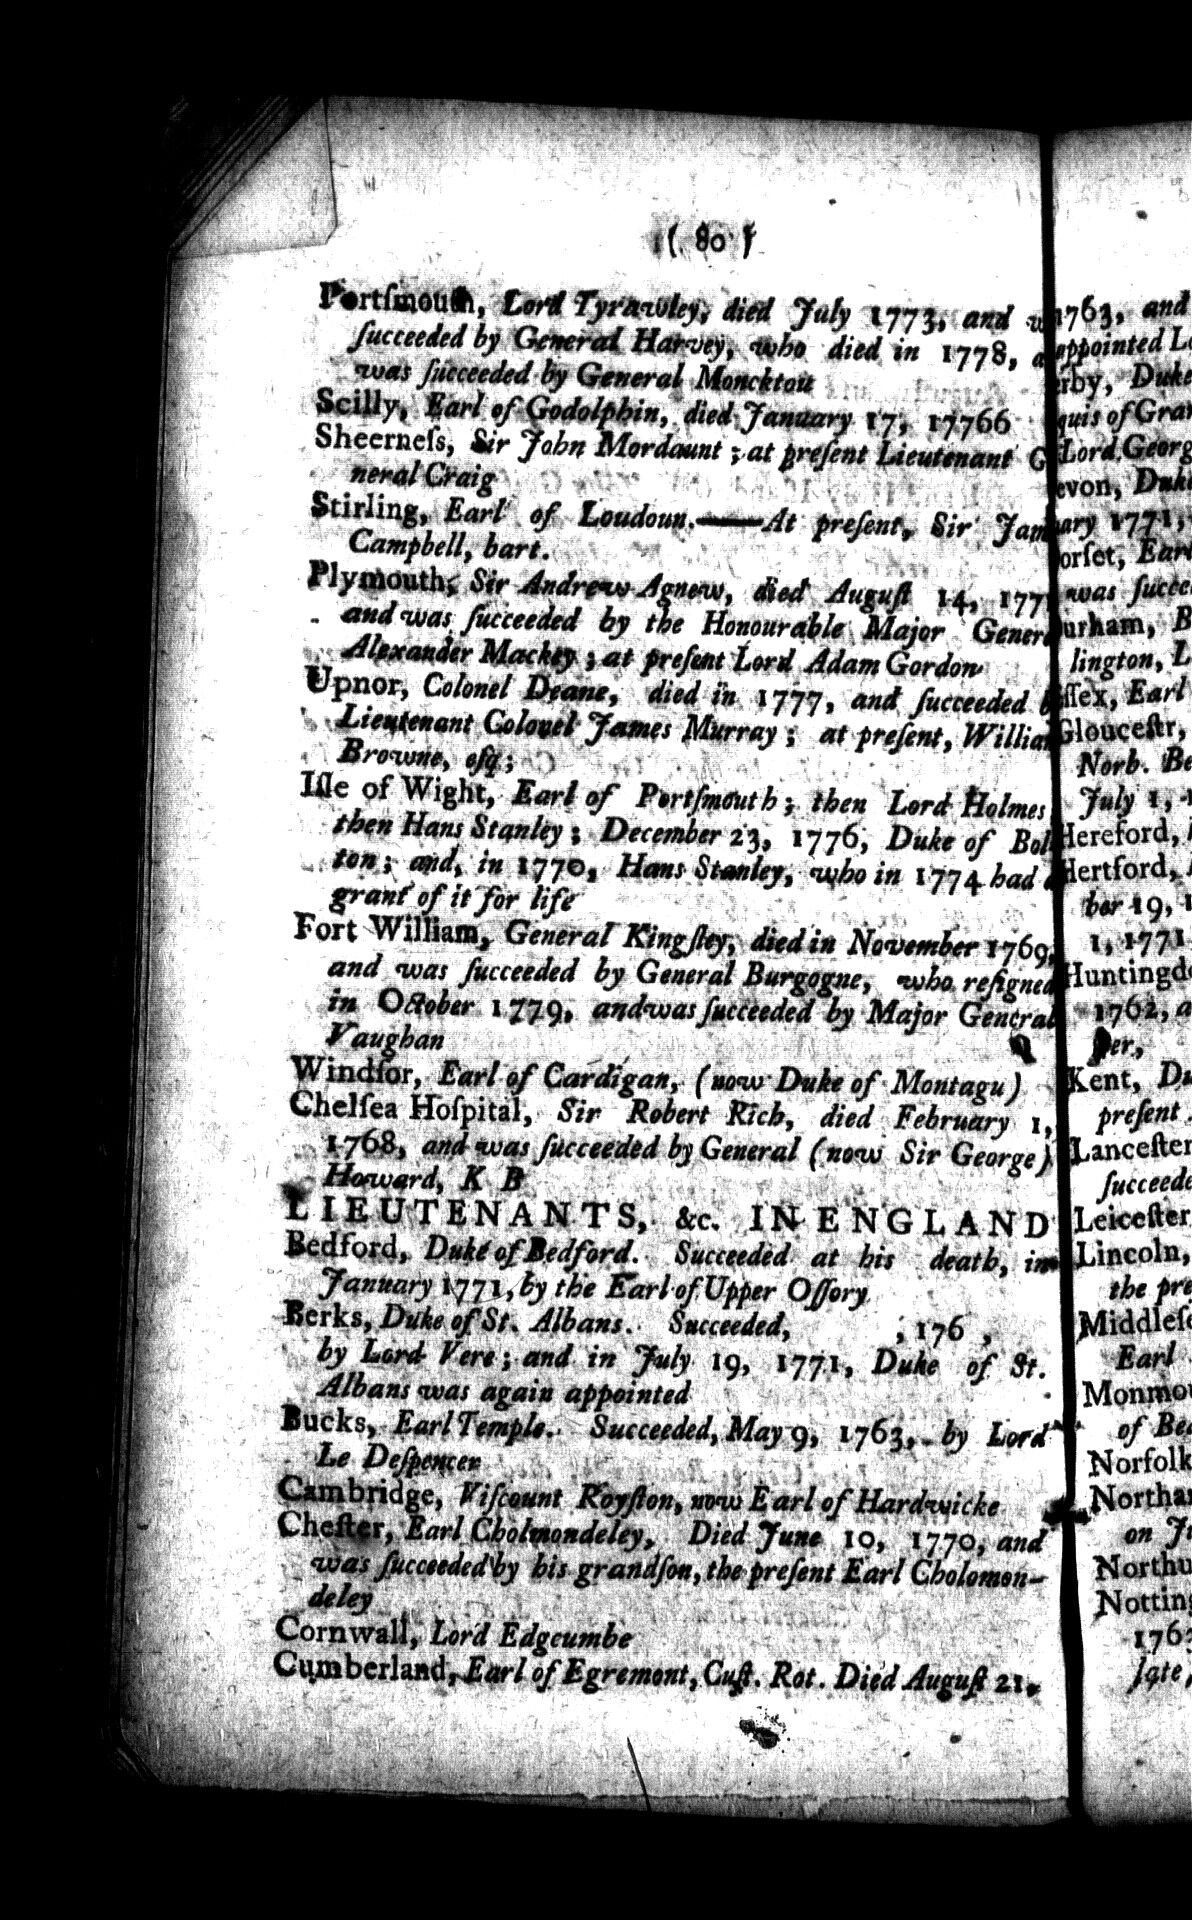 ( 80 )
Portſmouth, Lord Tyrawley, died July 1773, and w
ſucceeded by General Harvey, who died in 1778, a
was ſucceeded by General Monckton
Scilly, Earl of Godolphin, died January 17, 17766
Sheerneſs, Sir John Mordaunt ; at preſent Lieutenant G
neral Craig
Stirling, Earl of Loudoun.——At preſent, Sir Jam
Campbell, bart.
Plymouth, Sir Andrew Agnew, died Auguſt 14, 177
and was ſucceeded by the Honourable Major Genera
Alexander Mackey ; at preſent Lord Adam Gordon
Upnor, Colonel Deane, died in 1777, and ſucceeded b
Lieutenant Colonel James Murray ; at preſent, Willia
Browne, eſq;
Iſle of Wight, Earl of Portſmouth ; then Lord Holmes
then Hans Stanley ; December 23, 1776, Duke of Bol
ton ; and, in 1770, Hans Stanley, who in 1774 had a
grant of it for life
Fort William, General Kingſley, died in November 1769,
and was ſucceeded by General Burgogne, who reſigned
in October 1779, and was ſucceeded by Major General
Vaughan
Windſor, Earl of Cardigan, (now Duke of Montagu)
Chelſea Hoſpital, Sir Robert Rich, died February 1,
1768, and was ſucceeded by General (now Sir George)
Howard, K B
LIEUTENANTS, &c. IN ENGLAND
Bedford, Duke of Bedford. Succeeded at his death, in
January 1771, by the Earl of Upper Oſſory
Berks, Duke of St. Albans. Succeeded, , 176 ,
by Lord Vere ; and in July 19, 1771, Duke of St.
Albans was again appointed
Bucks, Earl Temple. Succeeded, May 9, 1763, by Lord
Le Deſpencer
Cambridge, Viſcount Royſton, now Earl of Hardwicke
Cheſter, Earl Cholmondeley, Died June 10, 1770, and
was ſucceeded by his grandſon, the preſent Earl Cholomon-
deley
Cornwall, Lord Edgcumbe
Cumberland, Earl of Egremont, Cuſt. Rot. Died Auguſt 21,
1763, and
appointed L
rby, Duke
quis of Gra
Lord Georg
evon, Duke
ary 1771,
orſet, Earl
was ſuccee
urham, B
lington, L
ſſex, Earl
Glouceſtr,
Norb. Be
July 1, 1
Hereford,
Hertford,
ber 19, 1
1, 1771
Huntingdo
1762, a
per,
Kent, Du
preſent
Lanceſter
ſucceede
Leiceſter
Lincoln,
the pre
Middleſe
Earl
Monmou
of Bea
Norfolk
Northam
on Ju
Northu
Notting
1763
late